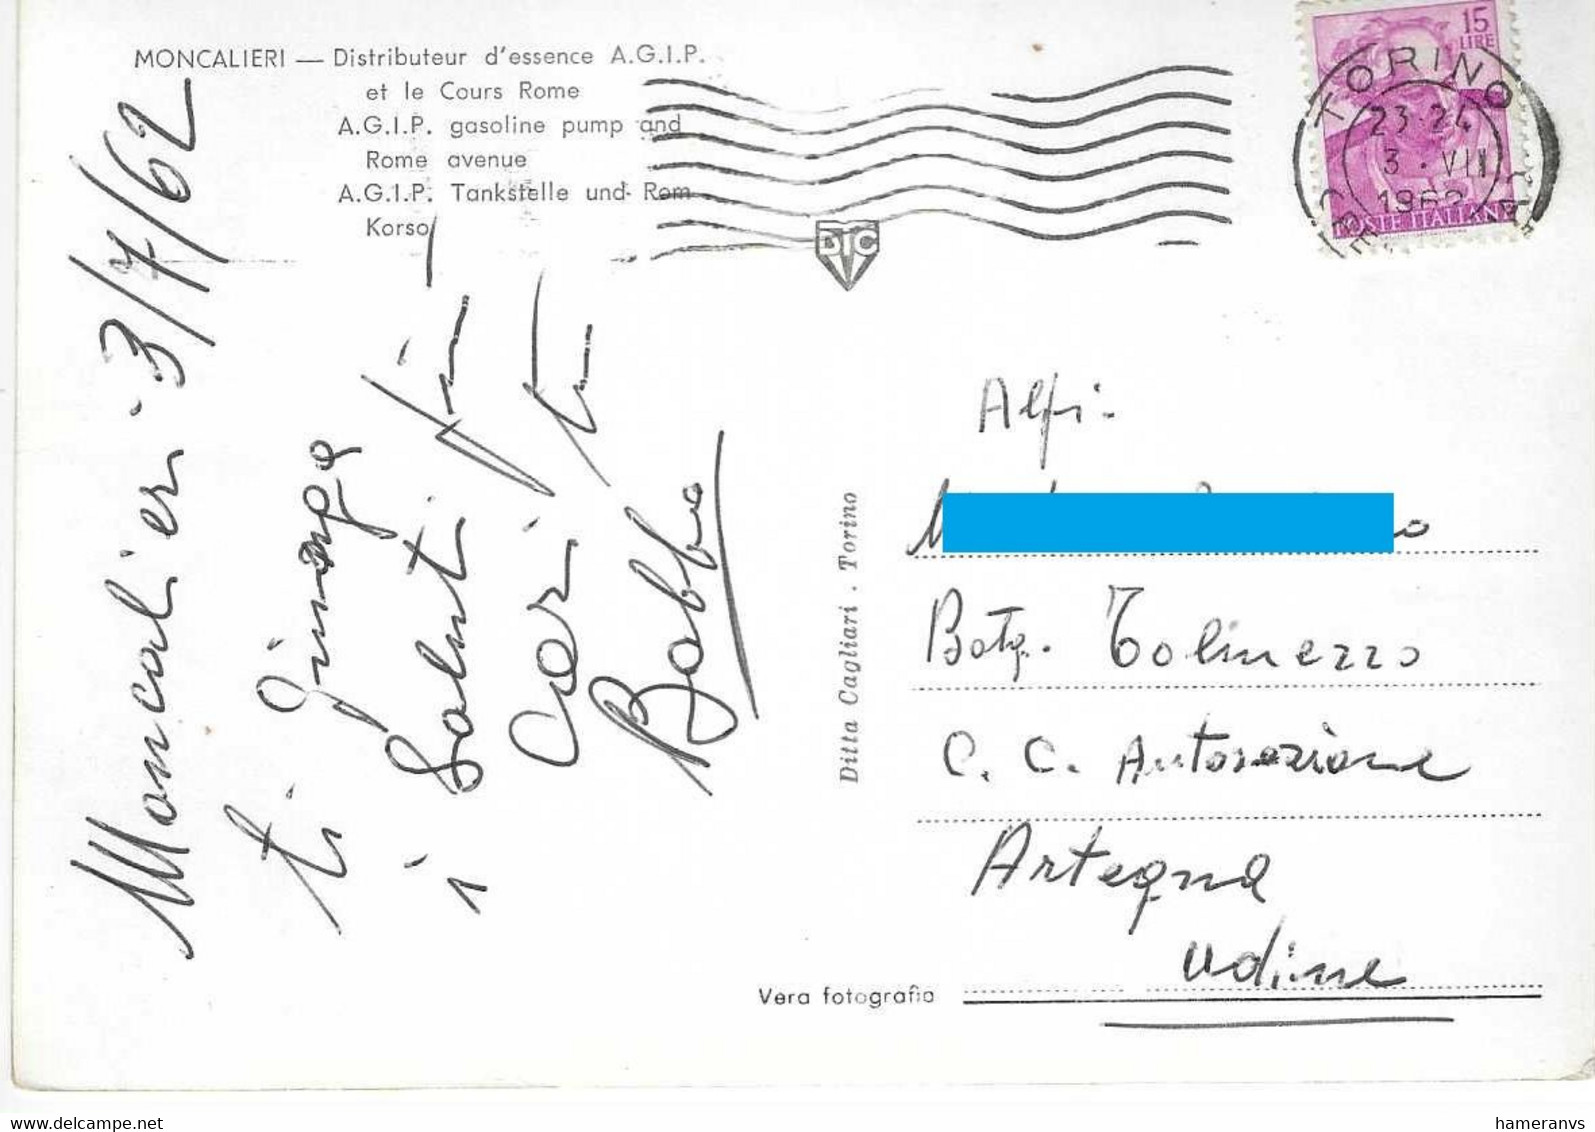 MONCALIERI — Distributeur d'essence A.G.I.P.
et le Cours Rome
A.G.I.P. gasoline pump and
Rome avenue
A.G.I.P. Tankstelle und Rom
Korso
15
LIRE
POSTE ITALIANE
TORINO
23-24
3 · VII
1962
DTC
Moncalieri 3/7/62
ti giunga
i Saluti
Cari
Babbo
Ditta Cagliari . Torino
Vera fotografia
Btg. Tolmezzo
C. C. Autosezione
Artegna
Udine
delcampe.net
hameranvs